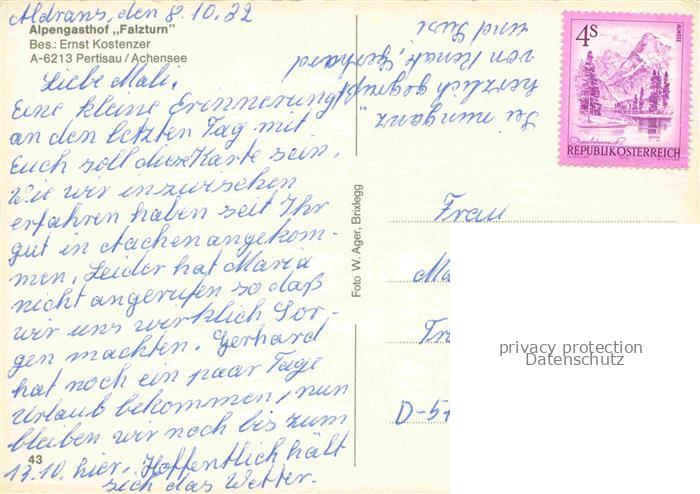 Aldrans, den 8.10.82
Alpengasthof „Falzturn"
Bes.: Ernst Kostenzer
A-6213 Pertisau / Achensee
Liebe Mali,
Eine kleine Erinnerung
an den letzten Tag mit
Euch soll diese Karte sein.
Wie wir inzwischen
erfahren haben seit Ihr
gut in Aachen angekom-
men. Leider hat Maria
nicht angerufen so daß
wir uns wirklich Sor-
gen machten. Gerhard
hat noch ein paar Tage
Urlaub bekommen, nun
bleiben wir noch bis zum
13.10. hier. Hoffentlich hält
sich das Wetter.
43
Sei nun ganz
herzlich gegrüßt
von Renate, Gerhard
und Susi
Foto W. Ager, Brixlegg
4s
ALMSEE
REPUBLIK ÖSTERREICH
Frau
Ma
Tr
D-51
privacy protection
Datenschutz